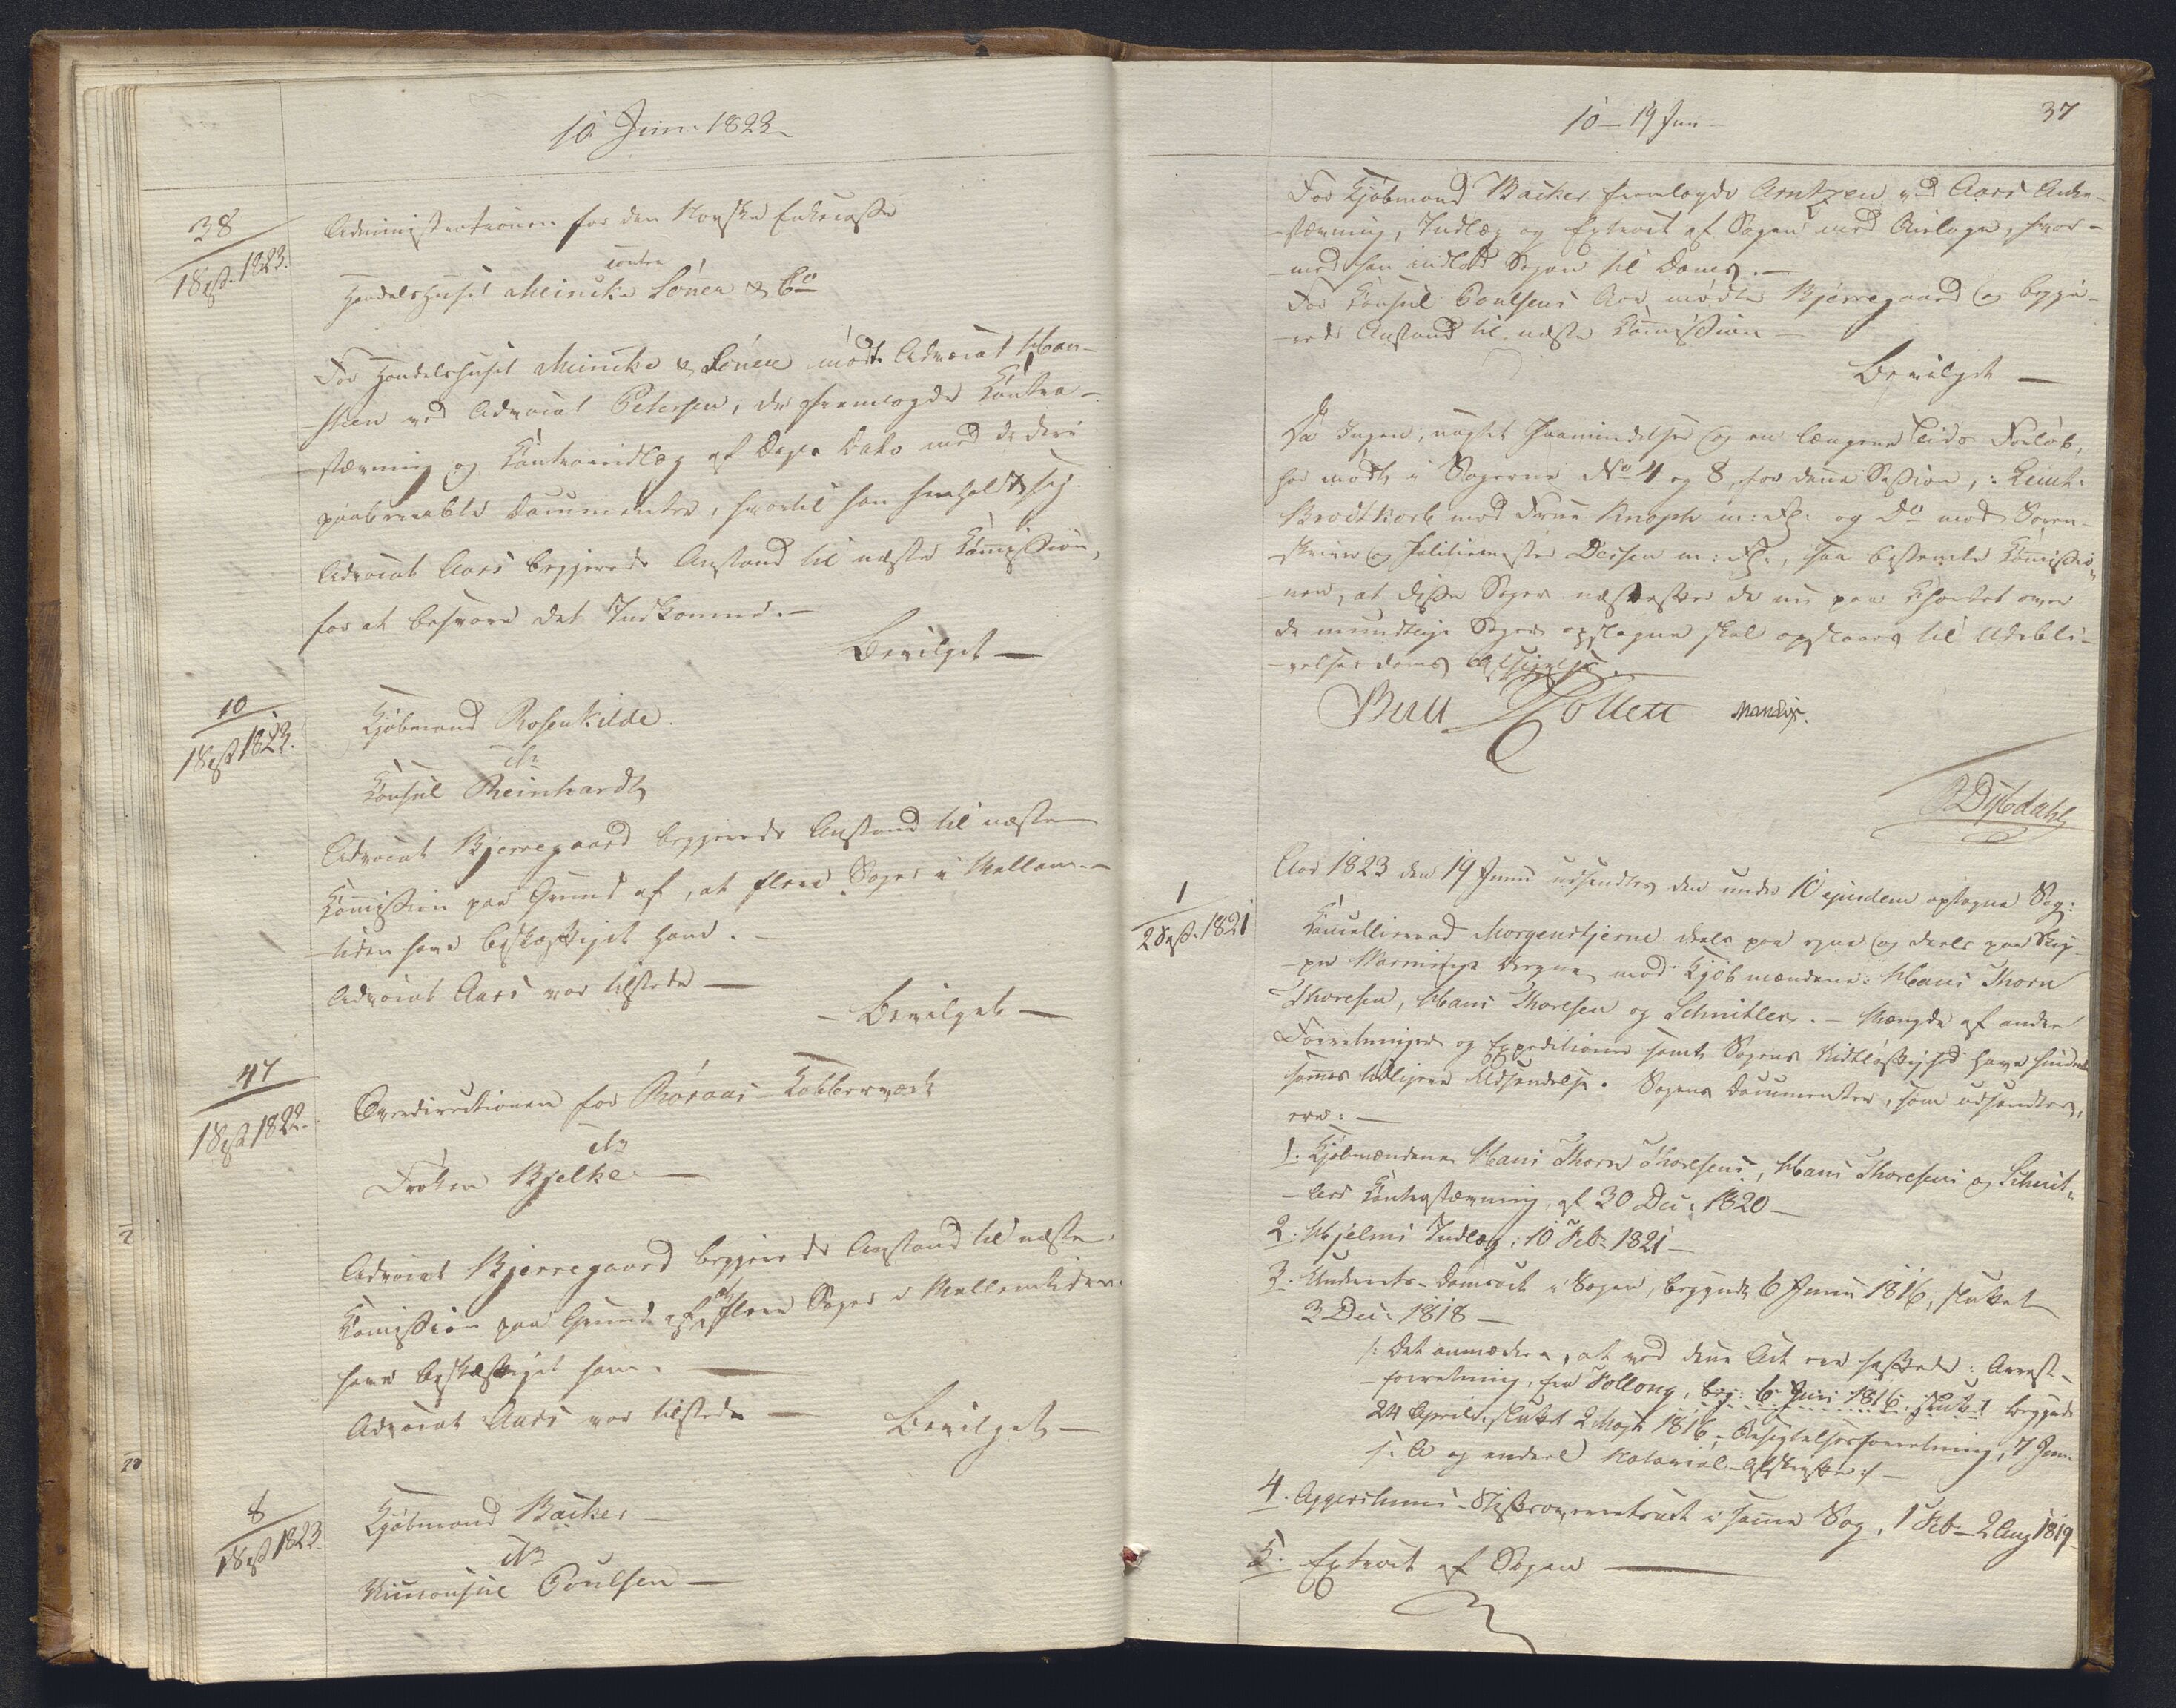 10 Juni 1823
38
1 Sess. 1823.
Administrationen for den Norske Enkecasse
contra
Handelshuset Meincke Sönner & Co
For Handelshuset Meincke & Sönner mödte Advocat Han-
sten ved Advocat Petersen, der fremlagde Contra-
stævning og Contraindlæg af Dags Dato med de deri
paaberaabte Documenter, hvortil han henholdt sig.
Advocat Aars begjerede Anstand til næste Commission,
for at besvare det Indkomne.—
Bevilget —
10
1 Sess 1823.
Kjöbmand Rosenkilde.
ctr
Consul Reinhardt
Advocat Bjerregaard begjerede Anstand til næste
Commission paa Grund af, at flere Sager i Mellem-
-tiden have beskæftiget ham.—
Advocat Aars var tilstede —
— Bevilget —
47
1 Sess 1822.
Overdirectionen for Röraas-Kobberværk
ctr
Fröken Bjelke —
Advocat Bjerregaard begjerede Anstand til næste
Commission paa Grund af, at flere Sager i Mellemtiden
have beskæftiget ham. —
Advocat Aars var tilstede —
Bevilget —
8
1 Sess 1823
Kjöbmand Backer —
ctr
Viceconsul Poulsen —
10 — 19 Juni —
37
For Kjöbmand Backer fremlagde Arntzen ved Aars Anke-
-stævning, Indlæg og Extract af Sagen med Bielage, hvor-
-med han indlod Sagen til Doms.—
For Consul Poulsens Bo mödte Bjerregaard og begje-
-rede Anstand til næste Commission —
Bevilget —
Da Ingen, uagtet Paamindelser og en længere Tids Forløb,
har mödt i Sagerne No 4 og 8, for denne Session, : Lieut:
Brodtkorb mod Frue Knoph m: Fl: og Do mod Soren-
-skriver og Politiemester Dessen m: Fl:, saa bestemte Commissio-
-nen, at disse Sager næstefter de nu paa Chartet over
de mundtlige Sager opslagne skal opslaaes til Udebli-
-velsesdoms Afsigelse.
Bull Collett Mandix.
Dybdahl
1
2 Sess. 1821
Aar 1823 den 19 Junii udsendtes den under 10 ejusdem optagne Sag:
Cancelliraad Morgenstjerne deels paa egne og deels paa Skip-
-per Vegne mod Kjöbmændene: Hans Thorn
Thoresen, Hans Thoresen og Schnitler. — Mængde af andre
Forretninger og Expeditioner samt Sagens Vidtløftighed have hindret
sammes tidligere Udsendelse. Sagens Documenter, som udsendtes,
ere: —
1. Kjöbmændene Hans Thorn Thoresens, Hans Thoresens og Schnit-
-lers Contrastævning af 30 Dec: 1820 —
2. Hjelms Indlæg: 10 Feb: 1821 —
3. Underrets-Domsact i Sagen, begyndt 6 Junii 1816, sluttet
3 Dec: 1818 —
/: Det anmærkes, at ved denne Act ere hæftede: Arrest-
-forretning, fra Follong, beg: 6 Juni 1816, sluttet begyndt
24 April, sluttet 2 Maji 1816; Besigtelsesforretning, 7 Juni
/: A og andre Notarial-Afskrifter :/ —
4. Aggershuus-Stiftsoverretsact i samme Sag, 1 Feb — 2 Aug 1819 —
5. Extract af Sagen —